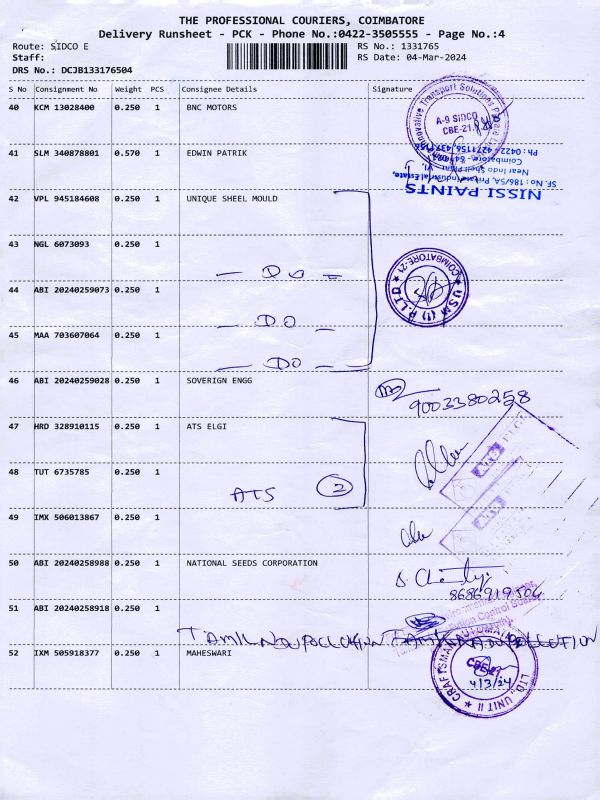 THE PROFESSIONAL COURIERS, COIMBATORE
Delivery Runsheet - PCK - Phone No.:0422-3505555 - Page No.:4
Route: SIDCO E RS No.: 1331765
Staff: RS Date: 04-Mar-2024
DRS No.: DCJB133176504
S No Consignment No Weight PCS Consignee Details Signature
40 KCM 13028400 0.250 1 BNC MOTORS
A-9 SIDCO
CBE-21.
41 SLM 340878801 0.570 1 EDWIN PATRIK
NISSI PAINTS
SF. No : 186/5A, Private Industrial Estate,
Near Indo Shell
Coimbatore
42 VPL 945184608 0.250 1 UNIQUE SHEEL MOULD
43 NGL 6073093 0.250 1
— DO —
44 ABI 20240259073 0.250 1
— DO —
USM (I) P LTD
COIMBATORE-21
45 MAA 703607064 0.250 1
— DO —
46 ABI 20240259028 0.250 1 SOVERIGN ENGG
9003380258
47 HRD 328910115 0.250 1 ATS ELGI
48 TUT 6735785 0.250 1
ATS 2
49 IMX 506013867 0.250 1
50 ABI 20240258988 0.250 1 NATIONAL SEEDS CORPORATION
8686919506
51 ABI 20240258918 0.250 1
52 IXM 505918377 0.250 1 MAHESWARI
CRAFTSMAN AUTOMATION
LTD., UNIT II
4/3/24